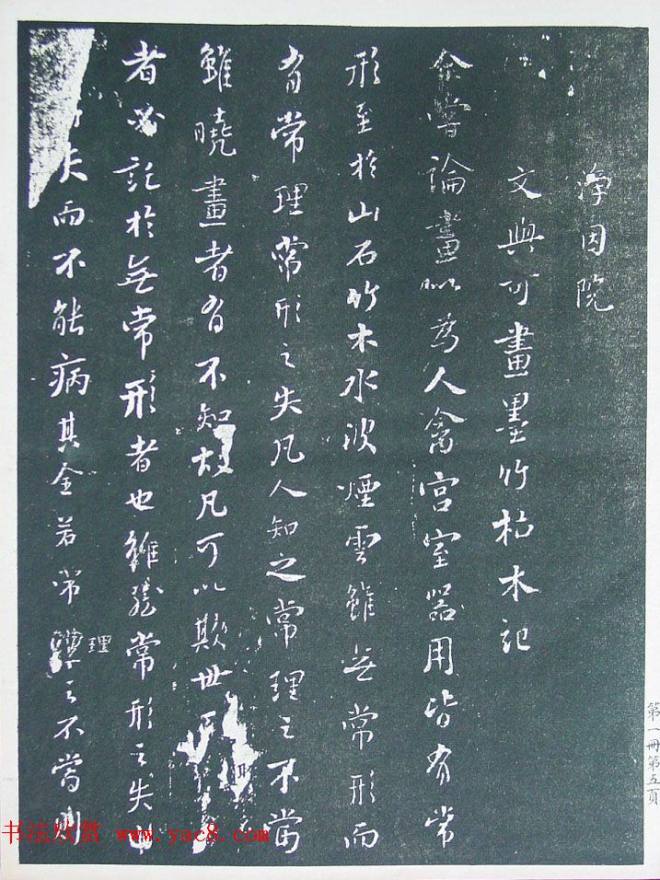 淨因院
文與可畫墨竹枯木記
余嘗論畫以為人禽宮室器用皆有常
形至於山石竹木水波煙雲雖無常形而
有常理常形之失凡人知之常理之不當
雖曉畫者有不知故凡可以欺世
者必託於無常形者也雖然常形之失止
失而不能病其全若常理之不當則
第一冊第五頁
书法欣赏 www.yac8.com